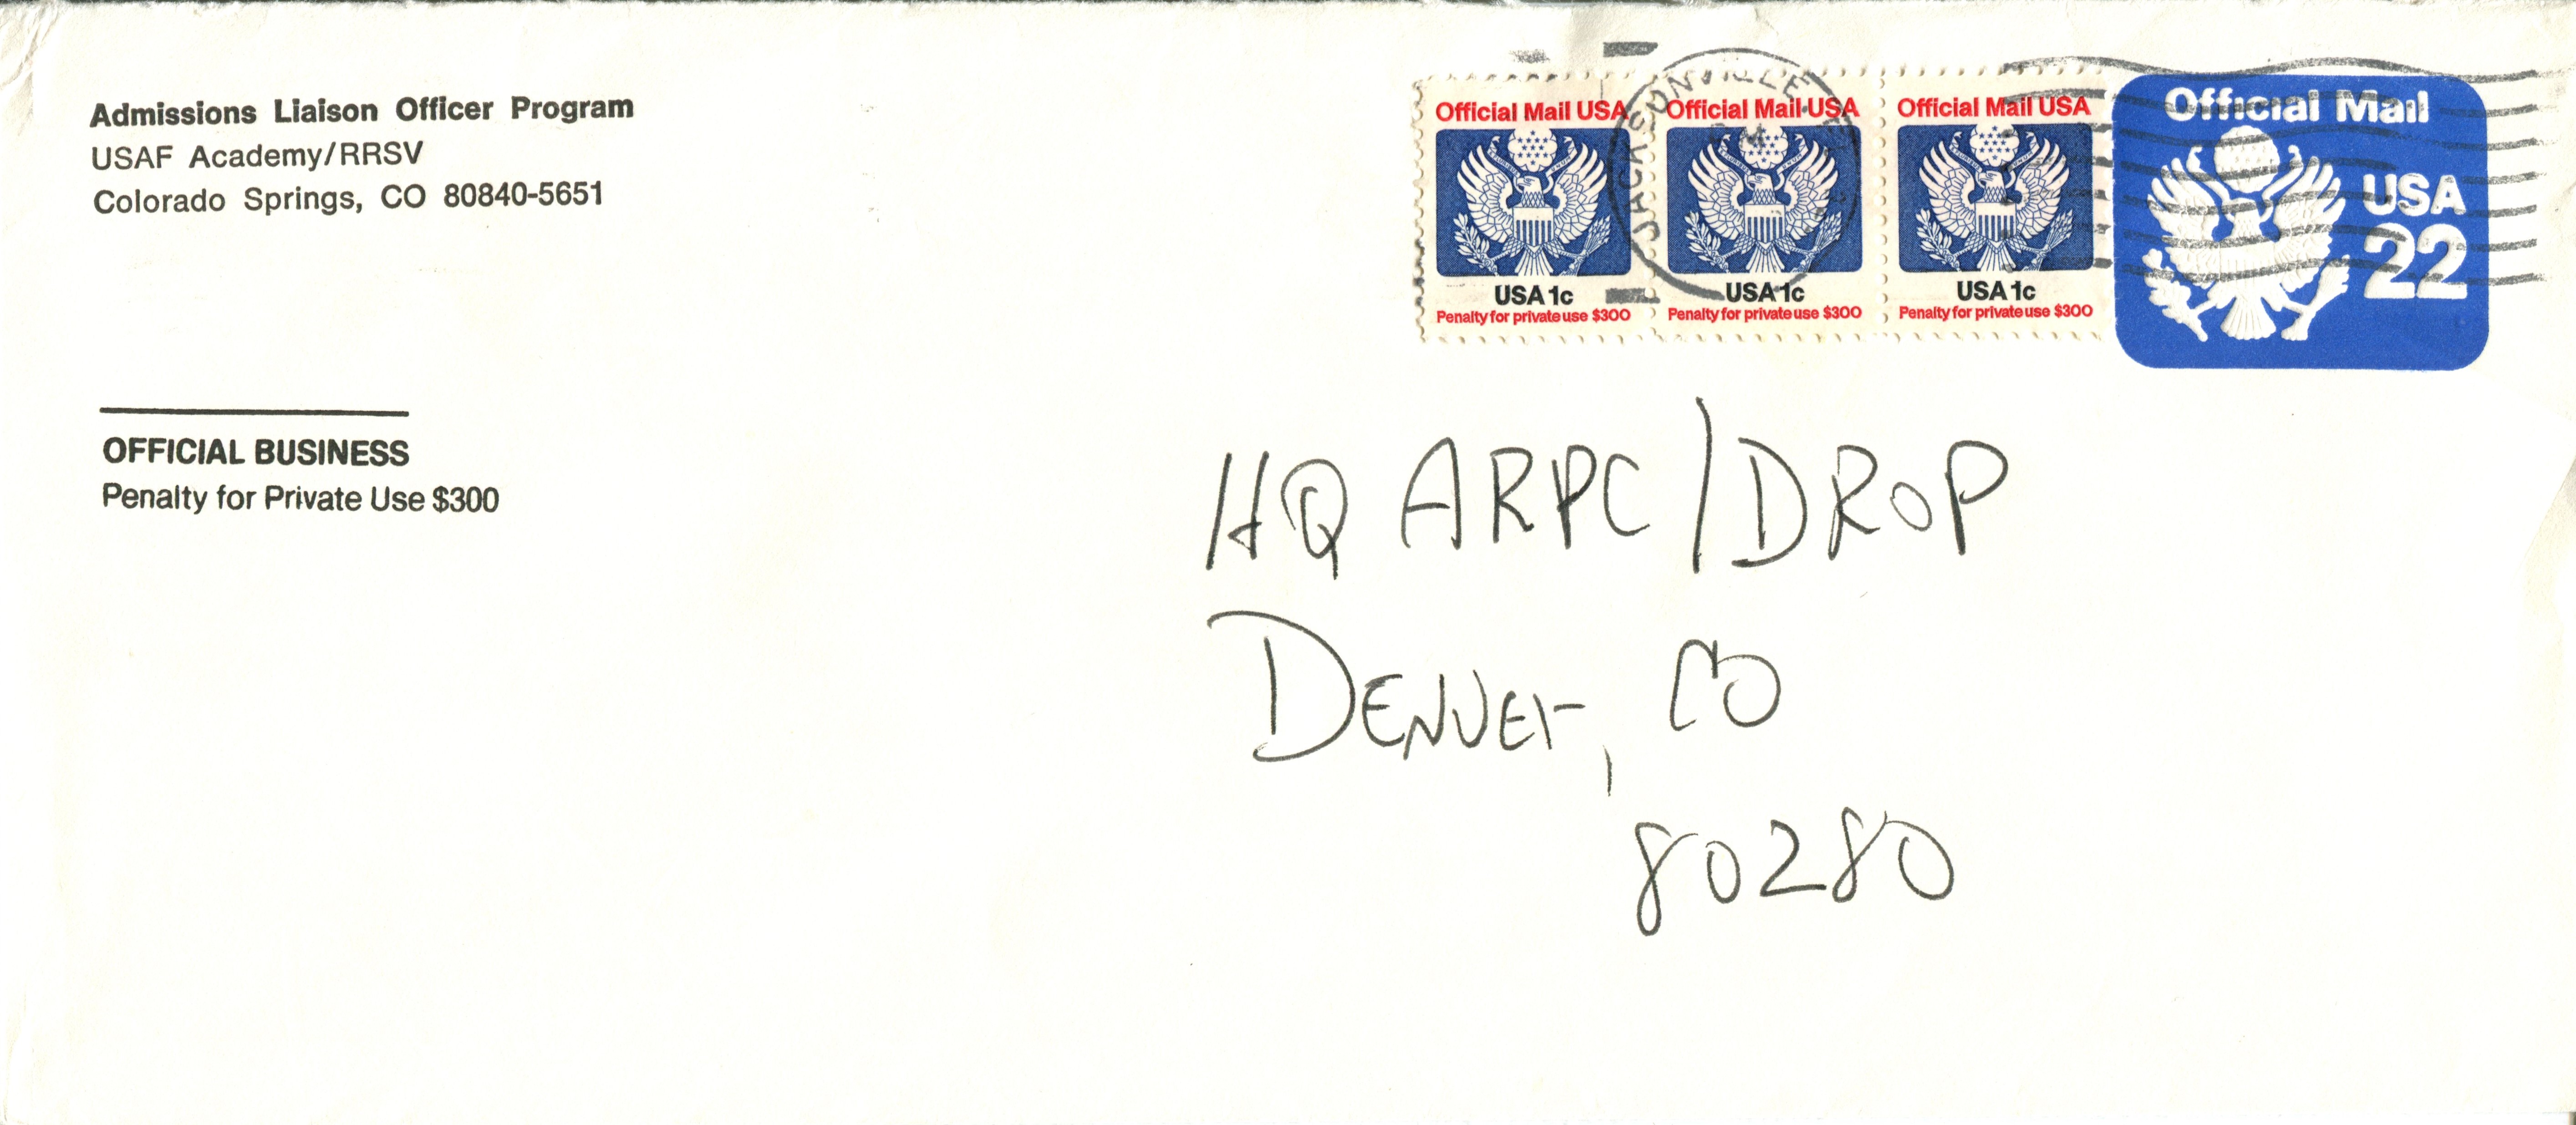 Admissions Liaison Officer Program
USAF Academy/RRSV
Colorado Springs, CO 80840-5651
OFFICIAL BUSINESS
Penalty for Private Use $300
Official Mail USA
USA 1c
Penalty for private use $300
Official Mail USA
USA 1c
Penalty for private use $300
Official Mail USA
USA 1c
Penalty for private use $300
JACKSONVILLE
Official Mail
USA
22
HQ ARPC/DROP
DENVEr, CO
80280